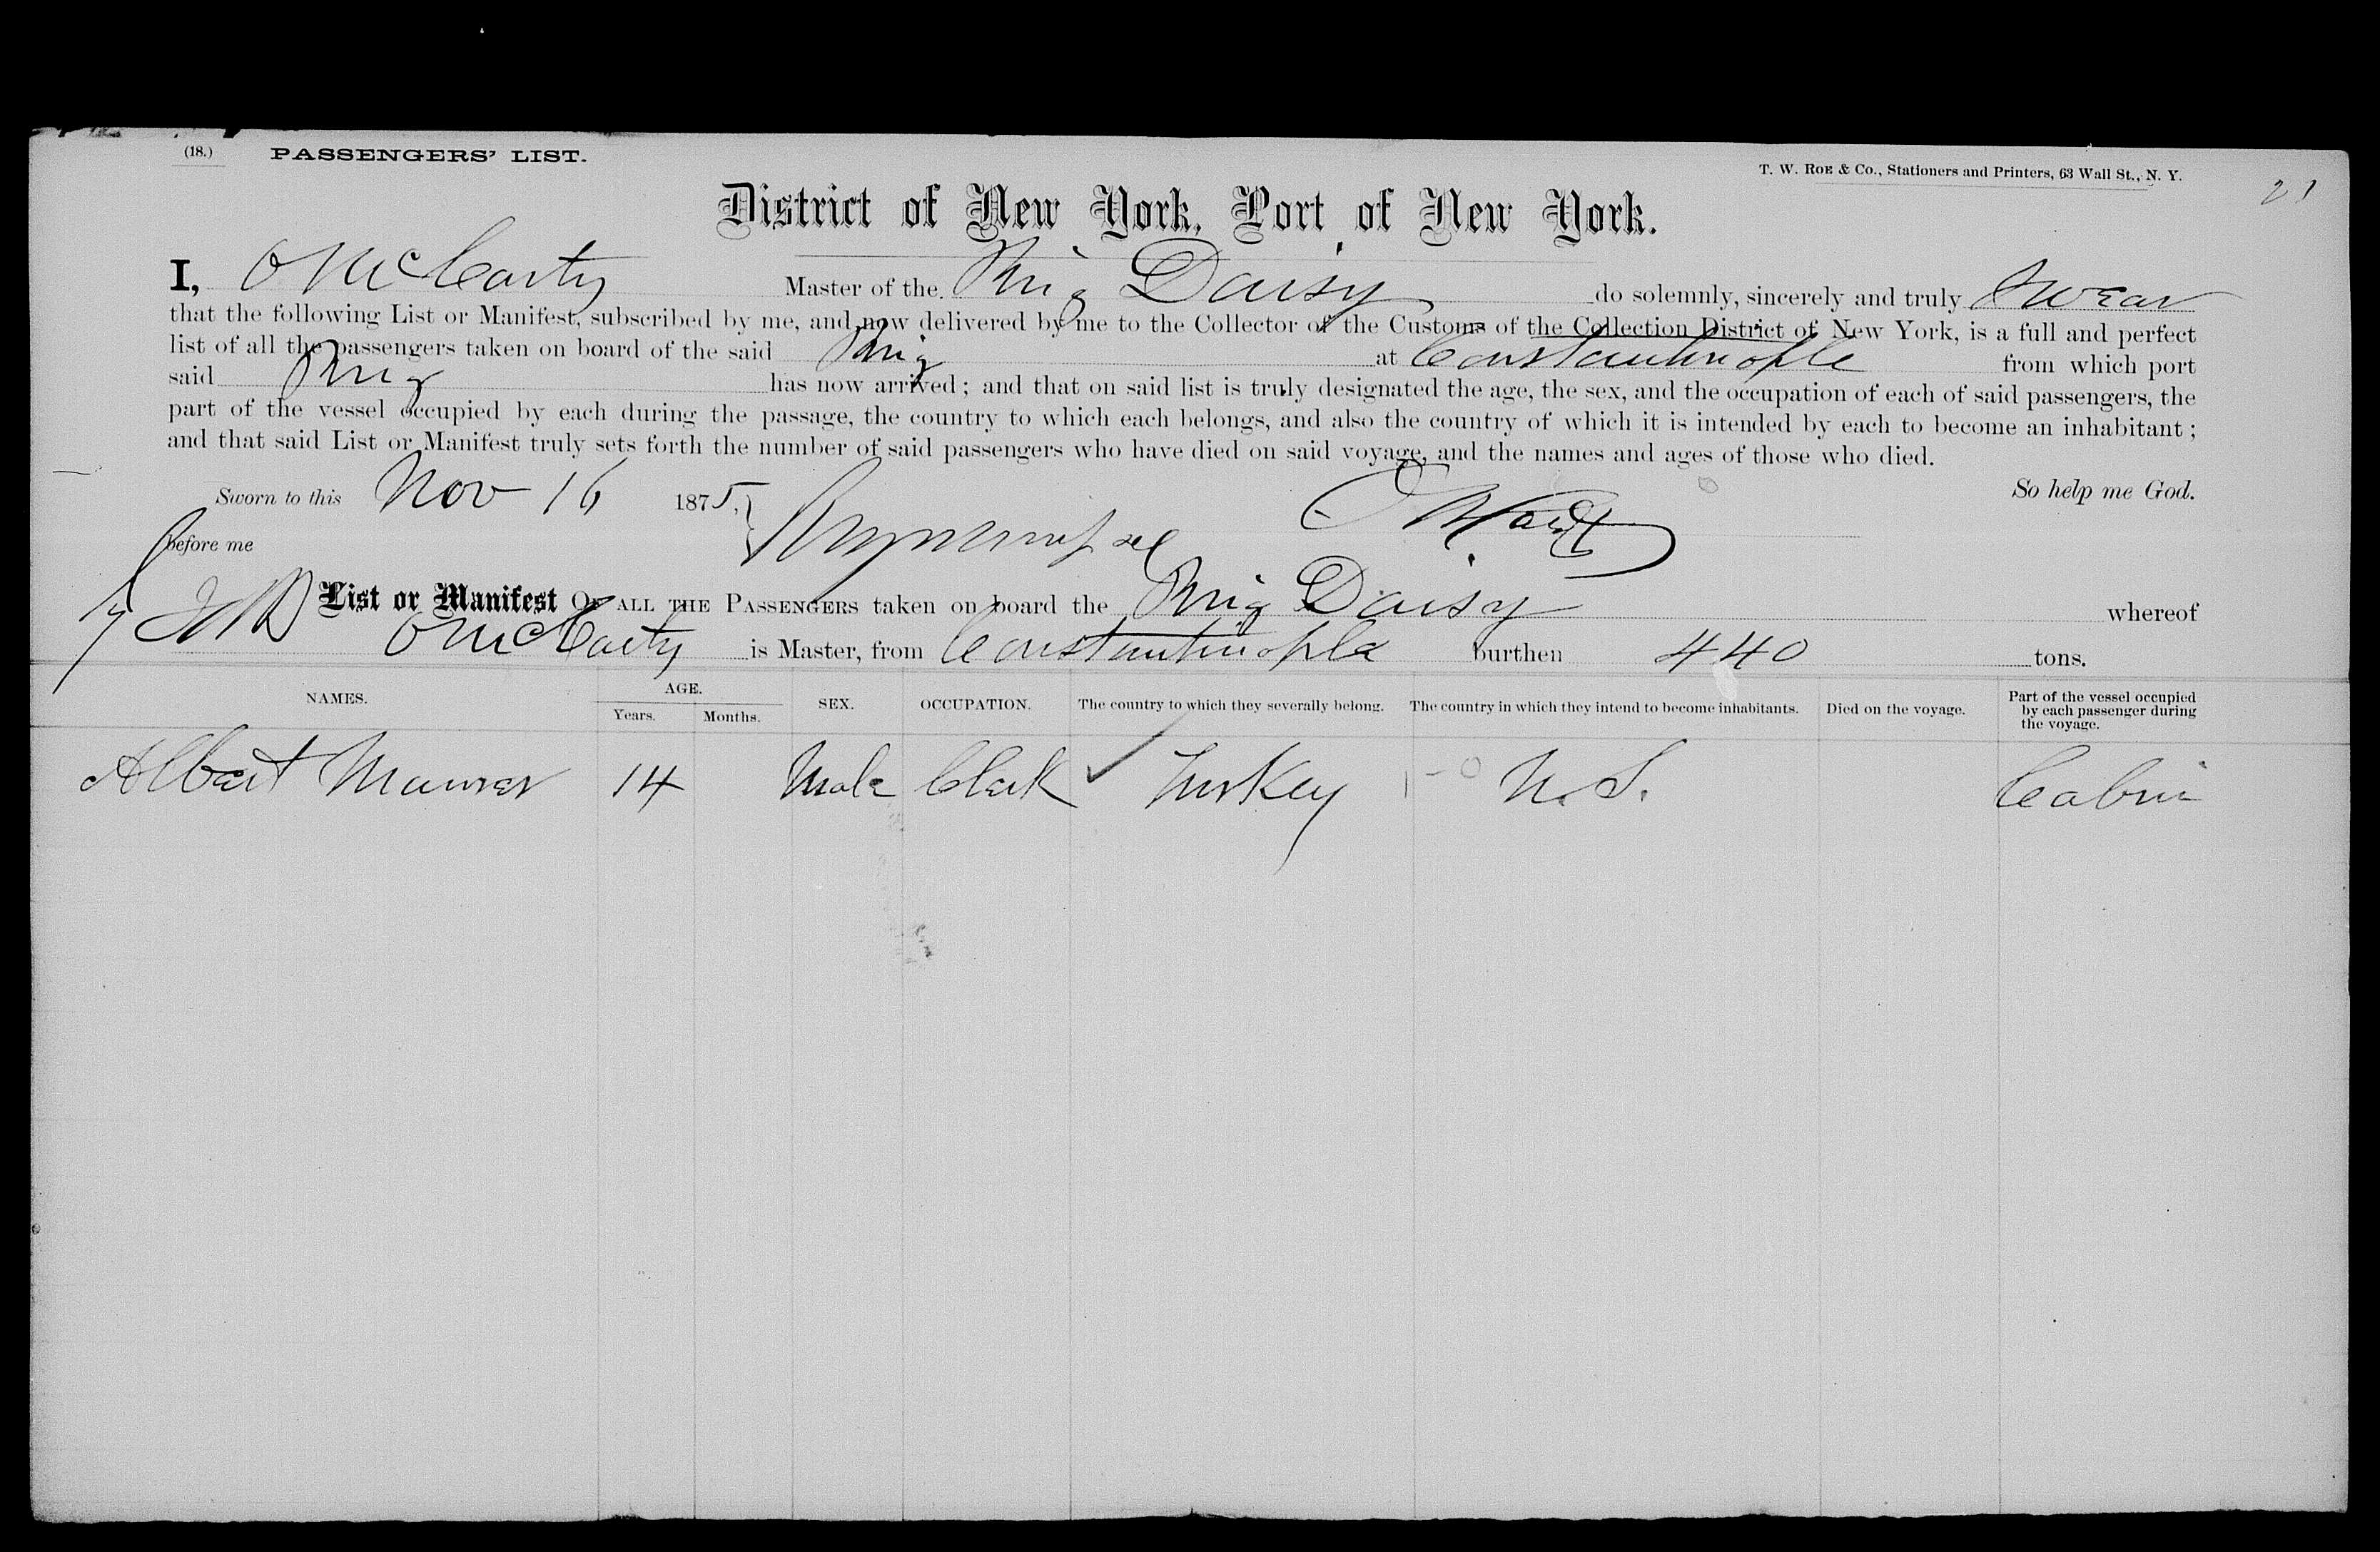 (18.) PASSENGERS' LIST.
T. W. ROE & Co., Stationers and Printers, 63 Wall St., N. Y.
21
District of New York, Port of New York.
I, O McCarty Master of the Brig Daisy do solemnly, sincerely and truly Swear
that the following List or Manifest, subscribed by me, and now delivered by me to the Collector of the Customs of the Collection District of New York, is a full and perfect
list of all the passengers taken on board of the said Brig at Constantinople from which port
said Brig has now arrived; and that on said list is truly designated the age, the sex, and the occupation of each of said passengers, the
part of the vessel occupied by each during the passage, the country to which each belongs, and also the country of which it is intended by each to become an inhabitant;
and that said List or Manifest truly sets forth the number of said passengers who have died on said voyage, and the names and ages of those who died.
Sworn to this Nov 16 1875, So help me God.
before me
List or Manifest OF ALL THE PASSENGERS taken on board the Brig Daisy whereof
O McCarty is Master, from Constantinople burthen 440 tons.
NAMES. AGE. Years. Months. SEX. OCCUPATION. The country to which they severally belong. The country in which they intend to become inhabitants. Died on the voyage. Part of the vessel occupied by each passenger during the voyage.
Albert Maurer 14 Male Clerk Turkey U.S. Cabin